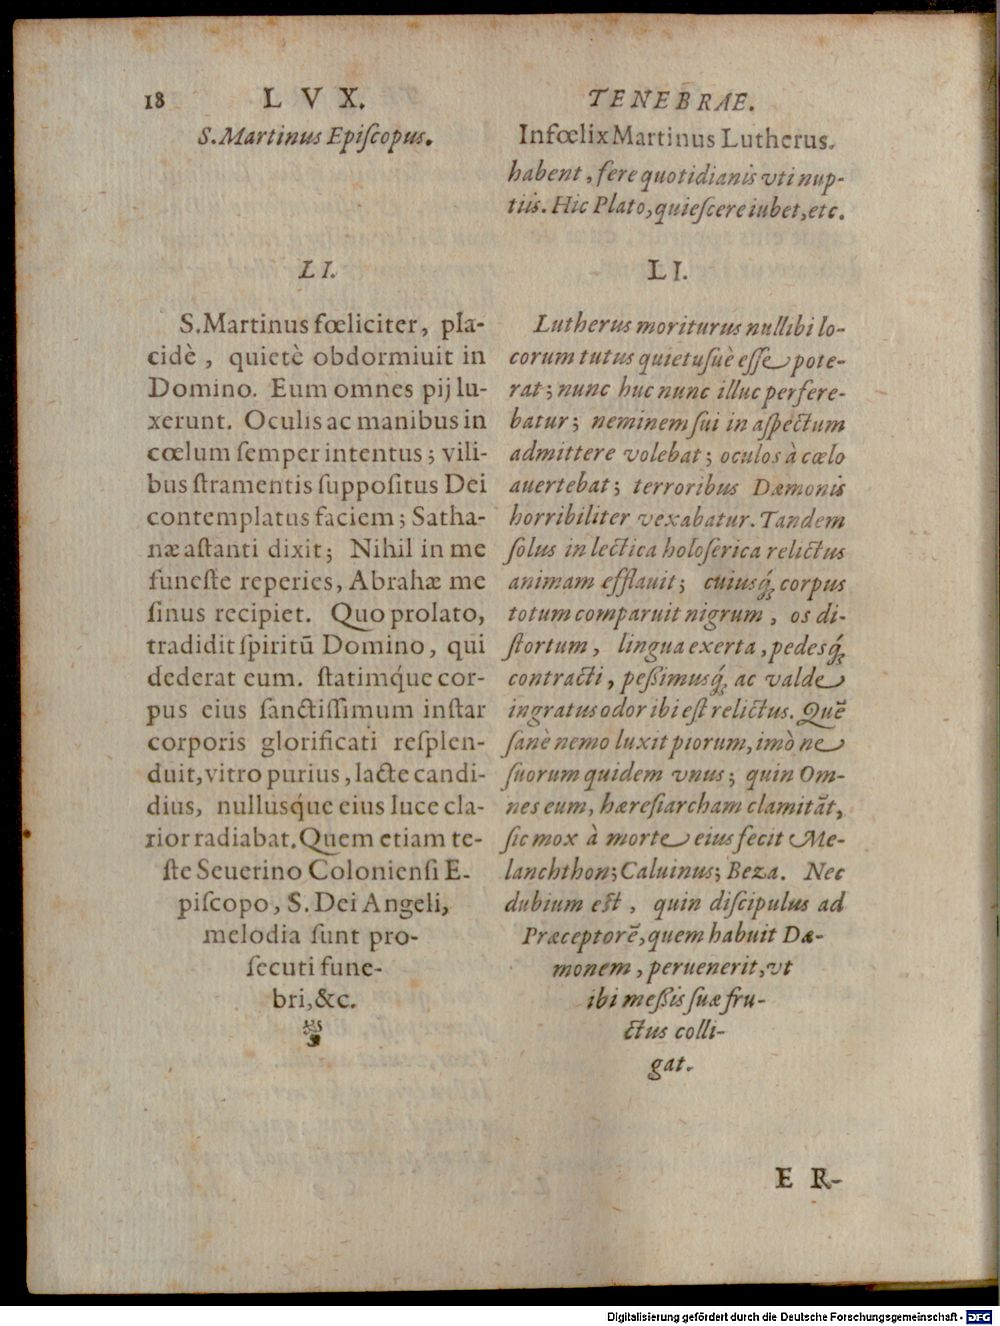 18 L V X.
S. Martinus Epiſcopus.
L I.
S. Martinus fœliciter, pla-
cidè, quietè obdormiuit in
Domino. Eum omnes pij lu-
xerunt. Oculis ac manibus in
cœlum ſemper intentus; vili-
bus ſtramentis ſuppoſitus Dei
contemplatus faciem; Satha-
næ aſtanti dixit; Nihil in me
funeſte reperies, Abrahæ me
ſinus recipiet. Quo prolato,
tradidit ſpiritū Domino, qui
dederat eum. ſtatimq́ue cor-
pus eius ſanctiſſimum inſtar
corporis glorificati reſplen-
duit, vitro purius, lacte candi-
dius, nullusq́ue eius luce cla-
rior radiabat. Quem etiam te-
ſte Seuerino Colonienſi E-
piſcopo, S. Dei Angeli,
melodia ſunt pro-
ſecuti fune-
bri, &c.
TENEBRAE.
Infœlix Martinus Lutherus.
habent, fere quotidianis vti nup-
tiis. Hic Plato, quieſcere iubet, etc.
L I.
Lutherus moriturus nullibi lo-
corum tutus quietuſuè eſſe pote-
rat; nunc huc nunc illuc perfere-
batur; neminem ſui in aſpectum
admittere volebat; oculos à cœlo
auertebat; terroribus Dæmonis
horribiliter vexabatur. Tandem
ſolus in lectica holoſerica relictus
animam efflauit; cuiusq́; corpus
totum comparuit nigrum, os di-
ſtortum, lingua exerta, pedesq́;
contracti, peßimusq́; ac valde
ingratus odor ibi eſt relictus. Quē
ſanè nemo luxit piorum, imò ne
ſuorum quidem vnus; quin Om-
nes eum, hæreſiarcham clamitāt,
ſic mox à morte eius fecit Me-
lanchthon; Caluinus; Beza. Nec
dubium eſt, quin diſcipulus ad
Præceptorē, quem habuit Dæ-
monem, peruenerit, vt
ibi meßis ſuæ fru-
ctus colli-
gat.
E R-
Digitalisierung gefördert durch die Deutsche Forschungsgemeinschaft - DFG